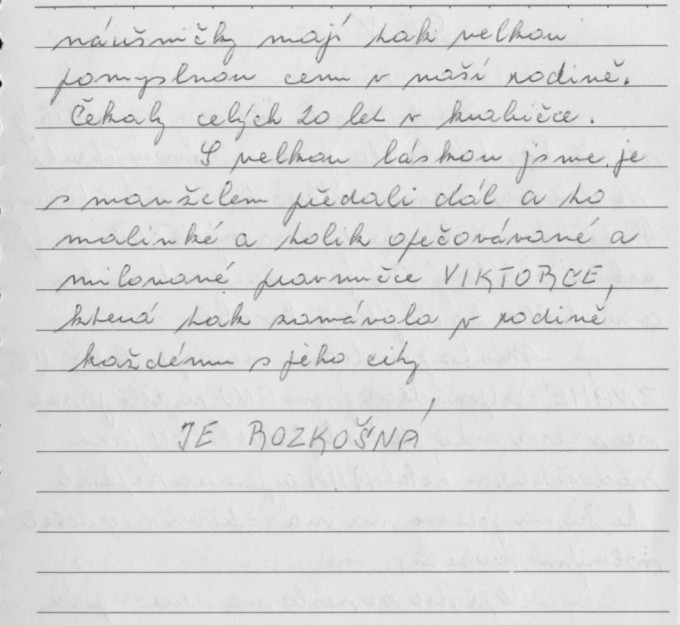 náušničky mají tak velkou
pomyslnou cenu v naší rodině.
Čekaly celých 20 let v krabičce.
S velkou láskou jsme je
s manželem předali dál a to
malinké a tolik opečovávané a
milované pravnučce VIKTORCE,
která tak zamávala v rodině
každému s jeho city
JE ROZKOŠNÁ